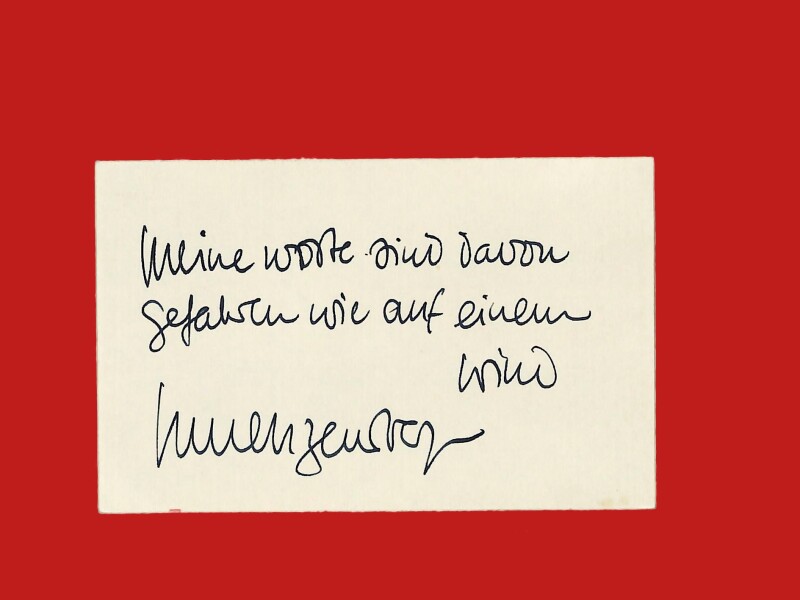 Meine worte sind davon
gefahren wie auf einem
wind